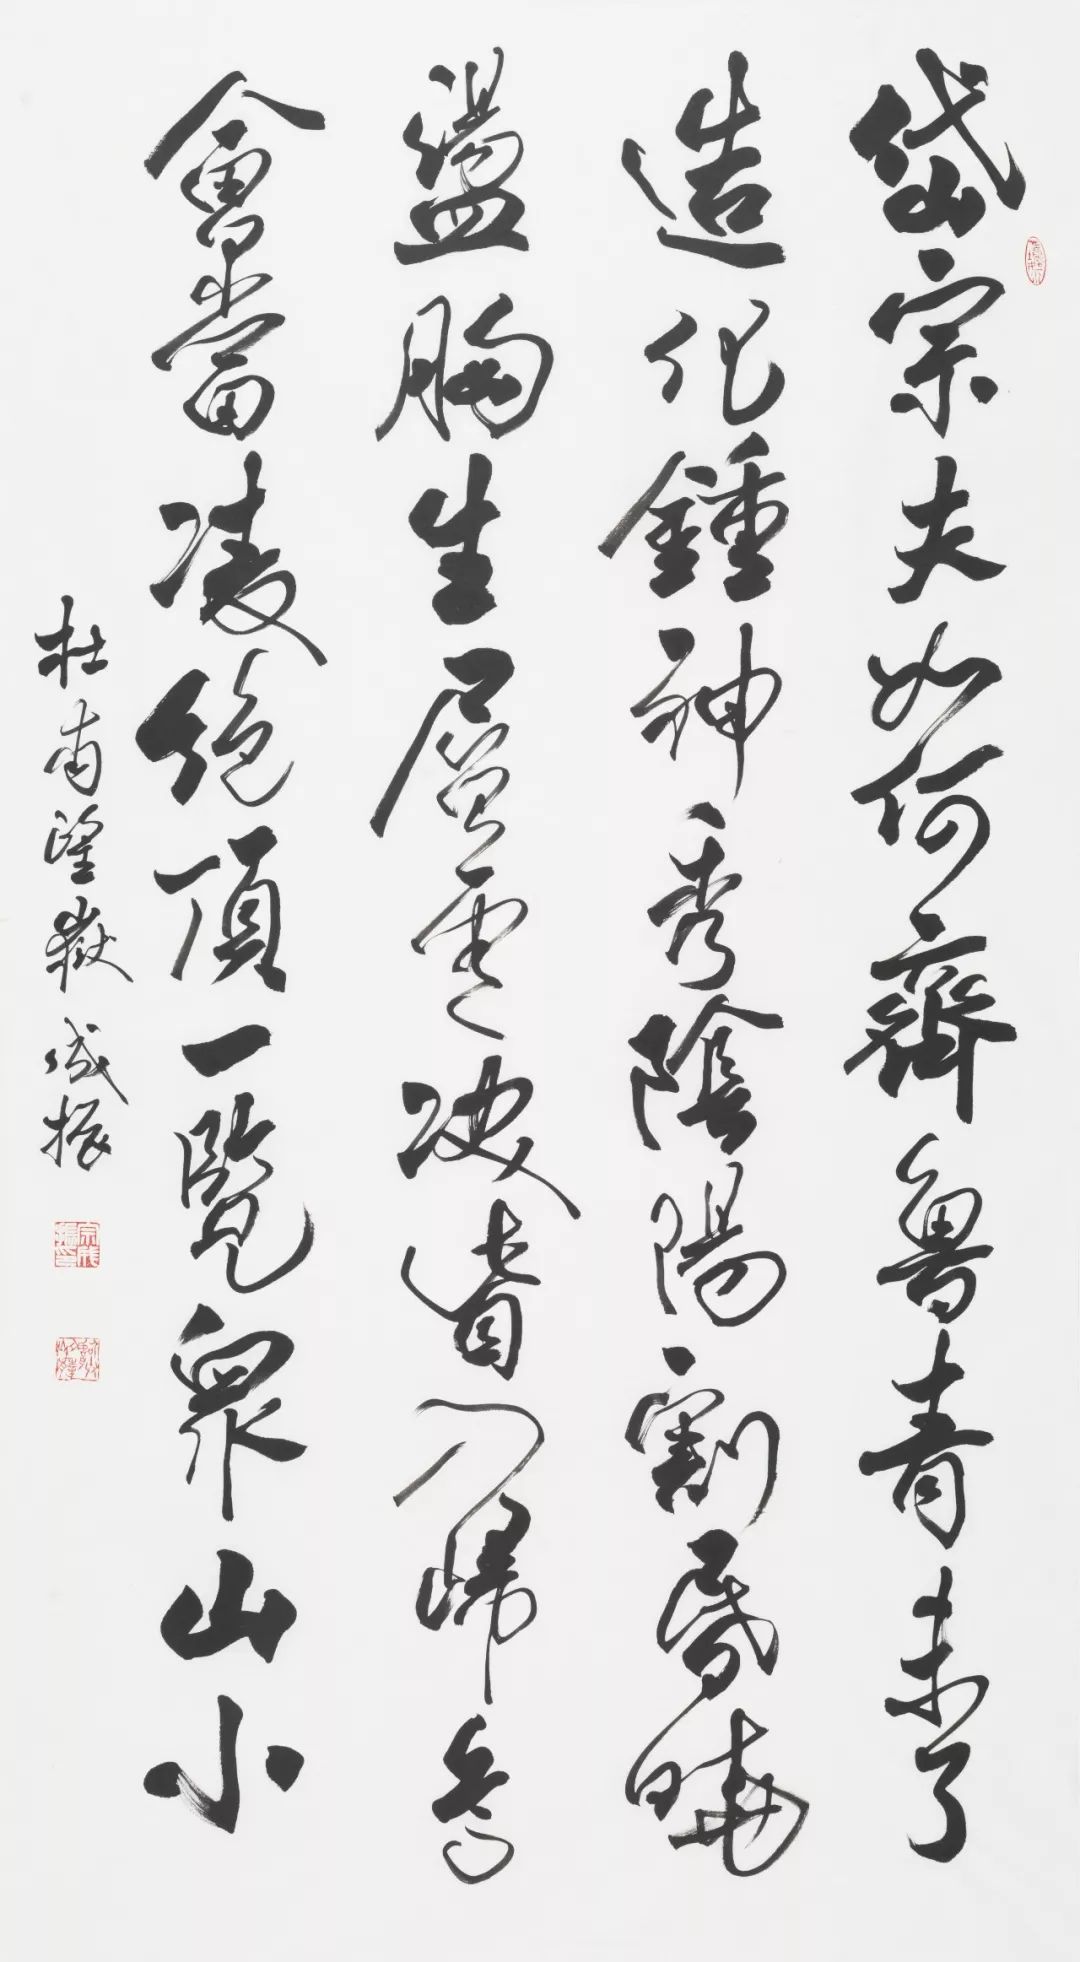 岱宗夫如何齊魯青未了
造化鍾神秀陰陽割昏曉
盪胸生層雲决眥入歸鳥
會當凌絕頂一覽眾山小
杜甫望嶽 成振
宗成振印